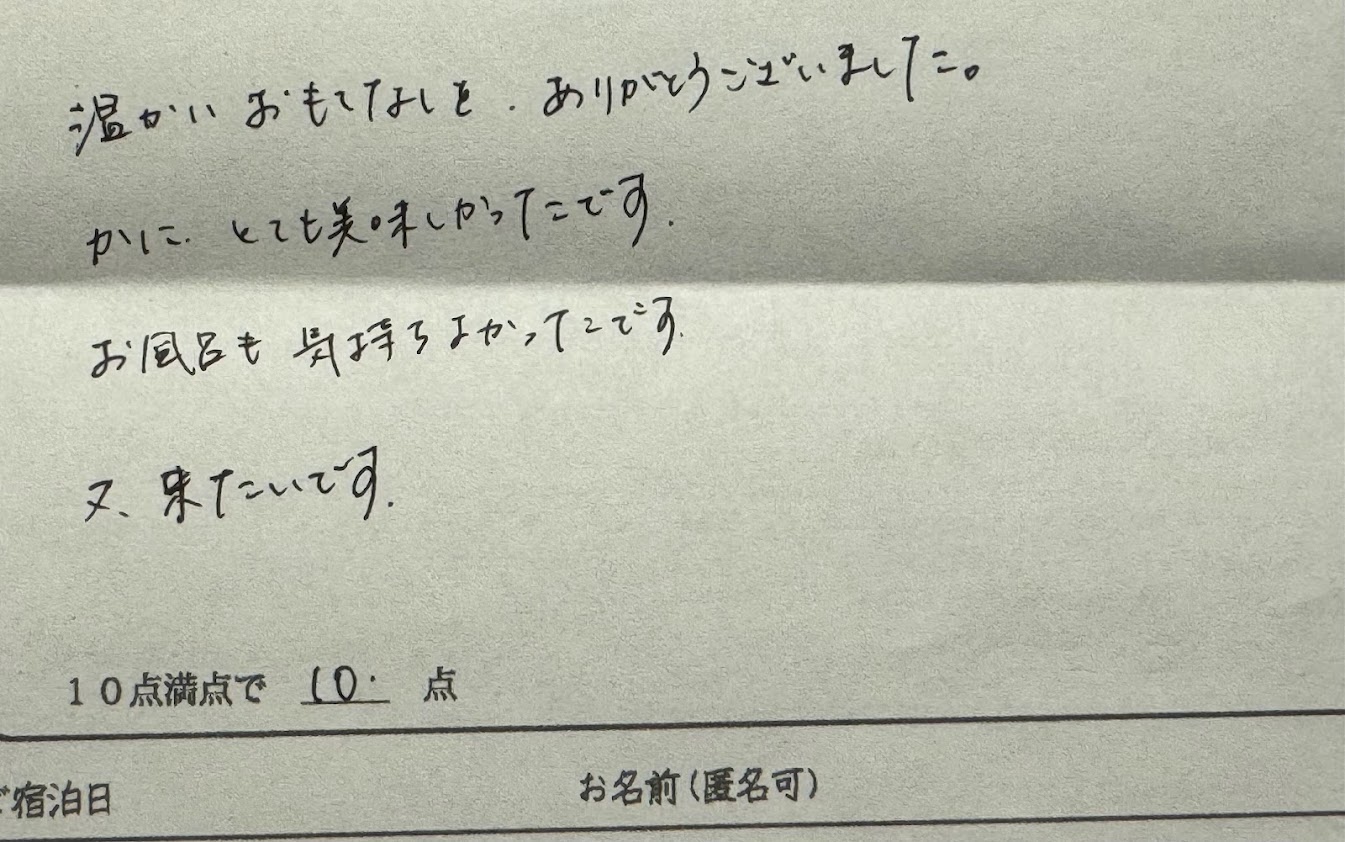 温かいおもてなしを、ありがとうございました。
かに、とても美味しかったです.
お風呂も気持ちよかったです.
又、来たいです.
10点満点で 10. 点
ご宿泊日
お名前(匿名可)